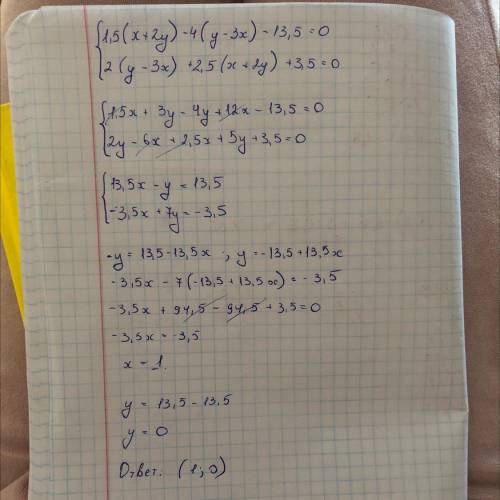 1,5(x+2y) -4(y-3x) -13,5=0
2(y-3x) +2,5(x+2y) +3,5=0
1,5x + 3y - 4y + 12x - 13,5=0
2y - 6x + 2,5x + 5y + 3,5=0
13,5x - y = 13,5
-3,5x + 7y = -3,5
-y = 13,5-13,5x ; y = -13,5+13,5x
-3,5x - 7(-13,5 + 13,5x) = -3,5
-3,5x + 94,5 - 94,5 + 3,5=0
-3,5x = -3,5
x = 1.
y = 13,5 - 13,5
y = 0
Ответ. (1; 0)